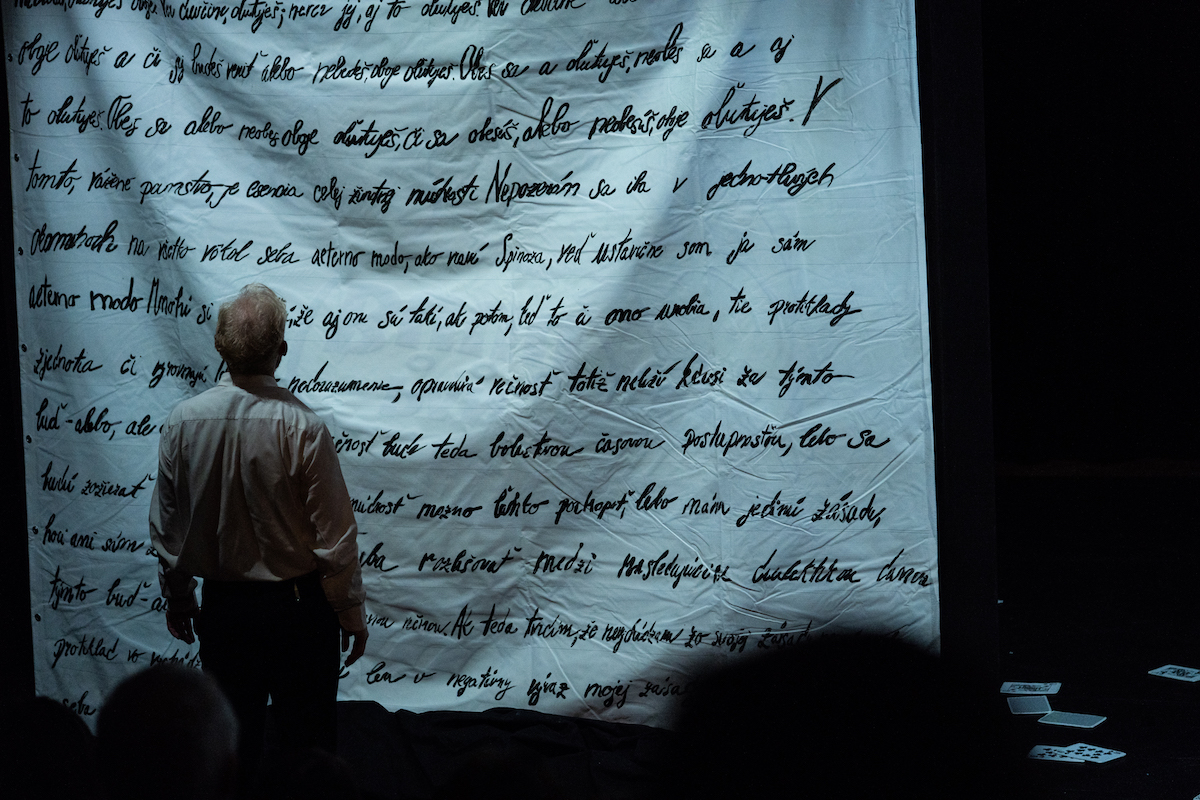 oľutuješ oboje. Ver dievčine, oľutuješ; never jej, aj to oľutuješ. Ver dievčine
oboje oľutuješ a či jej budeš veriť alebo nebudeš, oboje oľutuješ. Obes sa a oľutuješ, neobes sa a aj
to oľutuješ. Obes sa alebo neobes, oboje oľutuješ, či sa obesíš, alebo neobesíš, oboje oľutuješ. V
tomto, vážene panstvo, je esencia celej životnej múdrosti Nepozerám sa iba v jednotlivých
okamihoch na všetko vôkol seba aeterno modo, ako naví Spinoza, veď ustavične som ja sám
aeterno modo Mnohí si že aj oni sú takí, ak potom, keď to či ono urobia, tie protiklady
zjednotia či vyrovnajú nedorozumenie, opravdivá večnosť totiž neleží kdesi za týmto
buď-alebo, ale čnosť bude teda bolestivou časovou postupnosťou, lebo sa
budú zožierať múdrosť možno ľahko pochopiť, lebo mám jedinú zásadu,
hoci ani sám z rozlišovať medzi nasledujúcou dialektikou
týmto buď-a Ak teda tvrdím, že nevychádzam zo svojej zásad
protiklad vo len v negatívny výraz mojej zása
seba